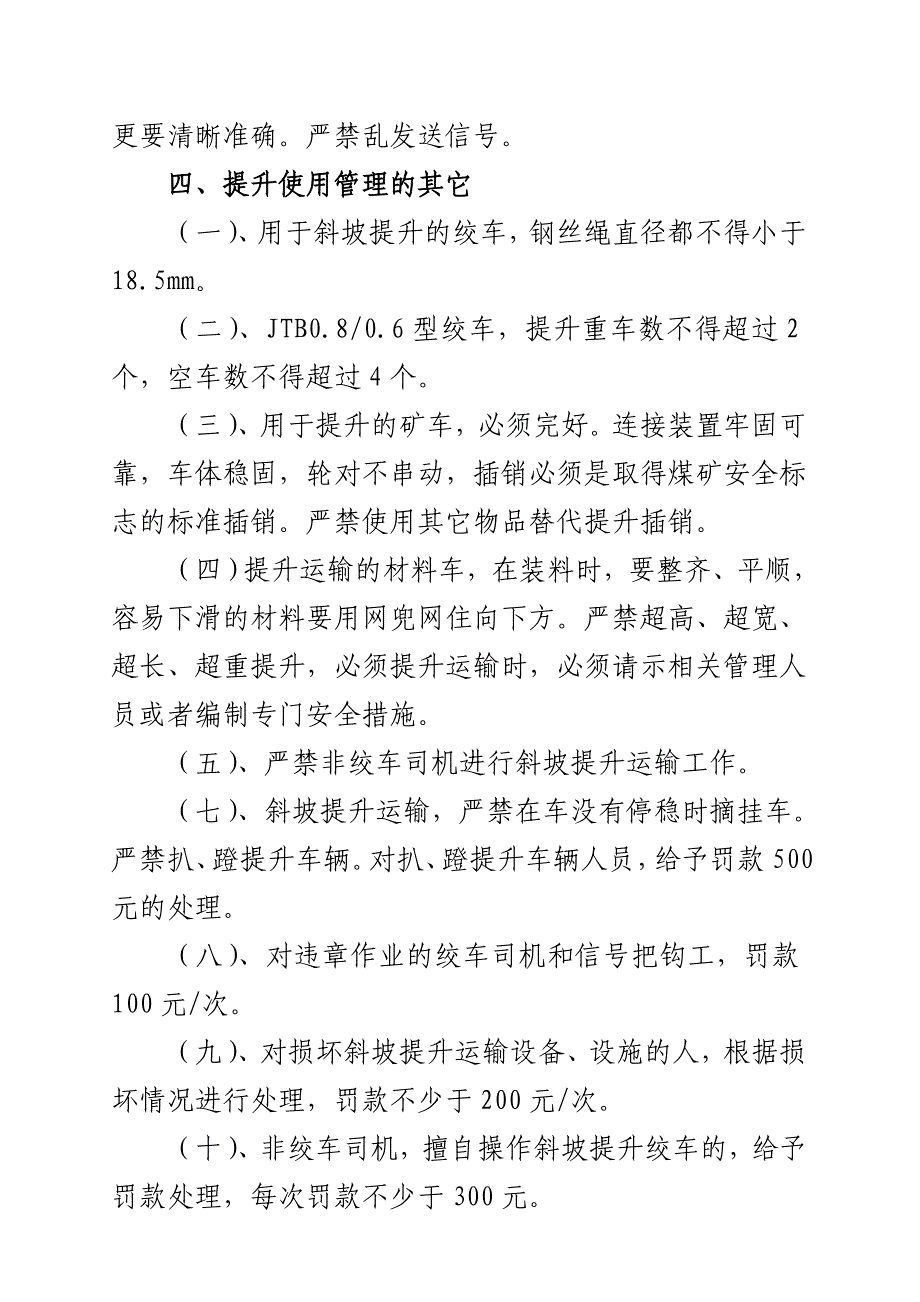 更要清晰准确。严禁乱发送信号。
四、提升使用管理的其它
（一）、用于斜坡提升的绞车，钢丝绳直径都不得小于
18.5mm。
（二）、JTB0.8/0.6型绞车，提升重车数不得超过2
个，空车数不得超过4个。
（三）、用于提升的矿车，必须完好。连接装置牢固可
靠，车体稳固，轮对不串动，插销必须是取得煤矿安全标
志的标准插销。严禁使用其它物品替代提升插销。
（四）提升运输的材料车，在装料时，要整齐、平顺，
容易下滑的材料要用网兜网住向下方。严禁超高、超宽、
超长、超重提升，必须提升运输时，必须请示相关管理人
员或者编制专门安全措施。
（五）、严禁非绞车司机进行斜坡提升运输工作。
（七）、斜坡提升运输，严禁在车没有停稳时摘挂车。
严禁扒、蹬提升车辆。对扒、蹬提升车辆人员，给予罚款500
元的处理。
（八）、对违章作业的绞车司机和信号把钩工，罚款
100元/次。
（九）、对损坏斜坡提升运输设备、设施的人，根据损
坏情况进行处理，罚款不少于200元/次。
（十）、非绞车司机，擅自操作斜坡提升绞车的，给予
罚款处理，每次罚款不少于300元。